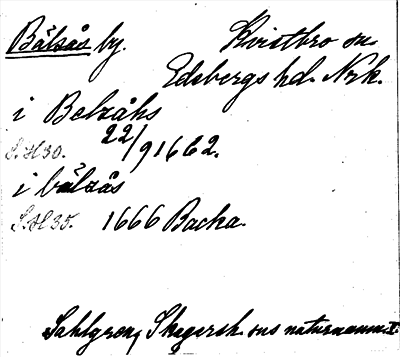 Bälsås by. Kvistbro sn.
Edsbergs hd. Nrk.
i Belzåhs
S.H30. 22/9 1662.
i bälzås
S.H35. 1666 Backa.
Sahlgren, Skagersh. sns naturnamn I.